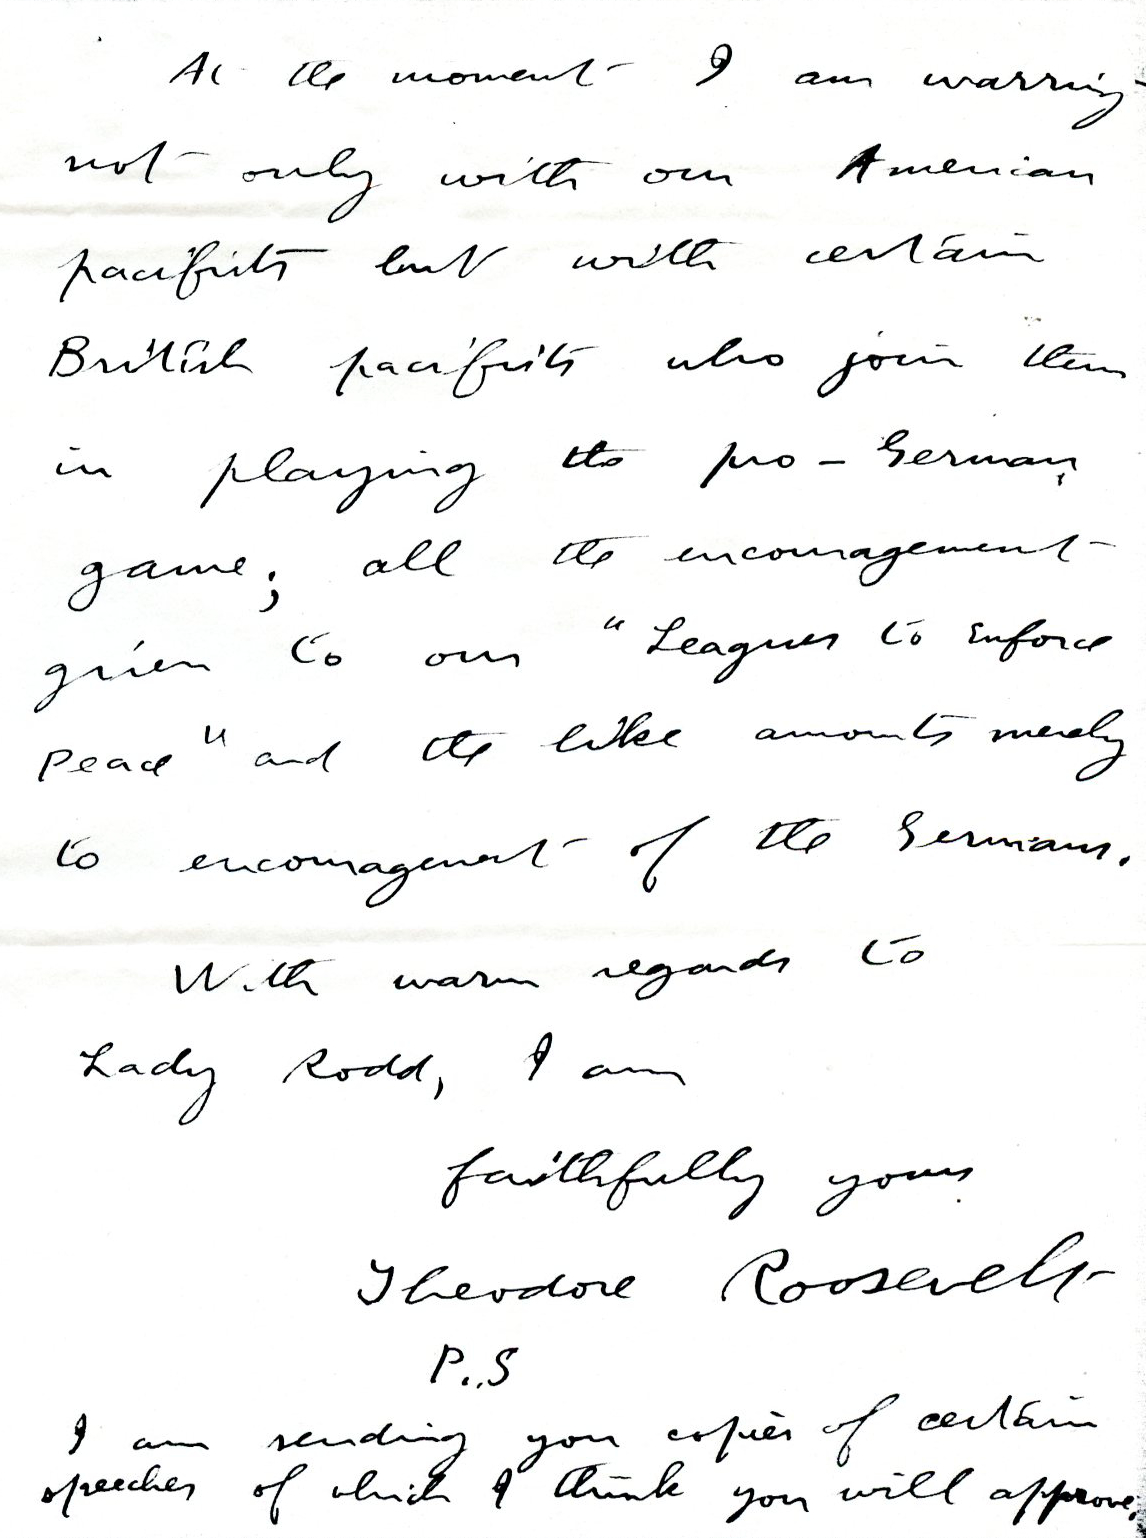 At the moment I am warring
not only with our American
pacifists but with certain
British pacifists who join them
in playing the pro-German
game; all the encouragement
given to our "Leagues to Enforce
Peace" and the like amounts merely
to encouragement of the Germans.
With warm regards to
Lady Rodd, I am
faithfully yours
Theodore Roosevelt
P..S
I am sending you copies of certain
speeches of which I think you will approve;